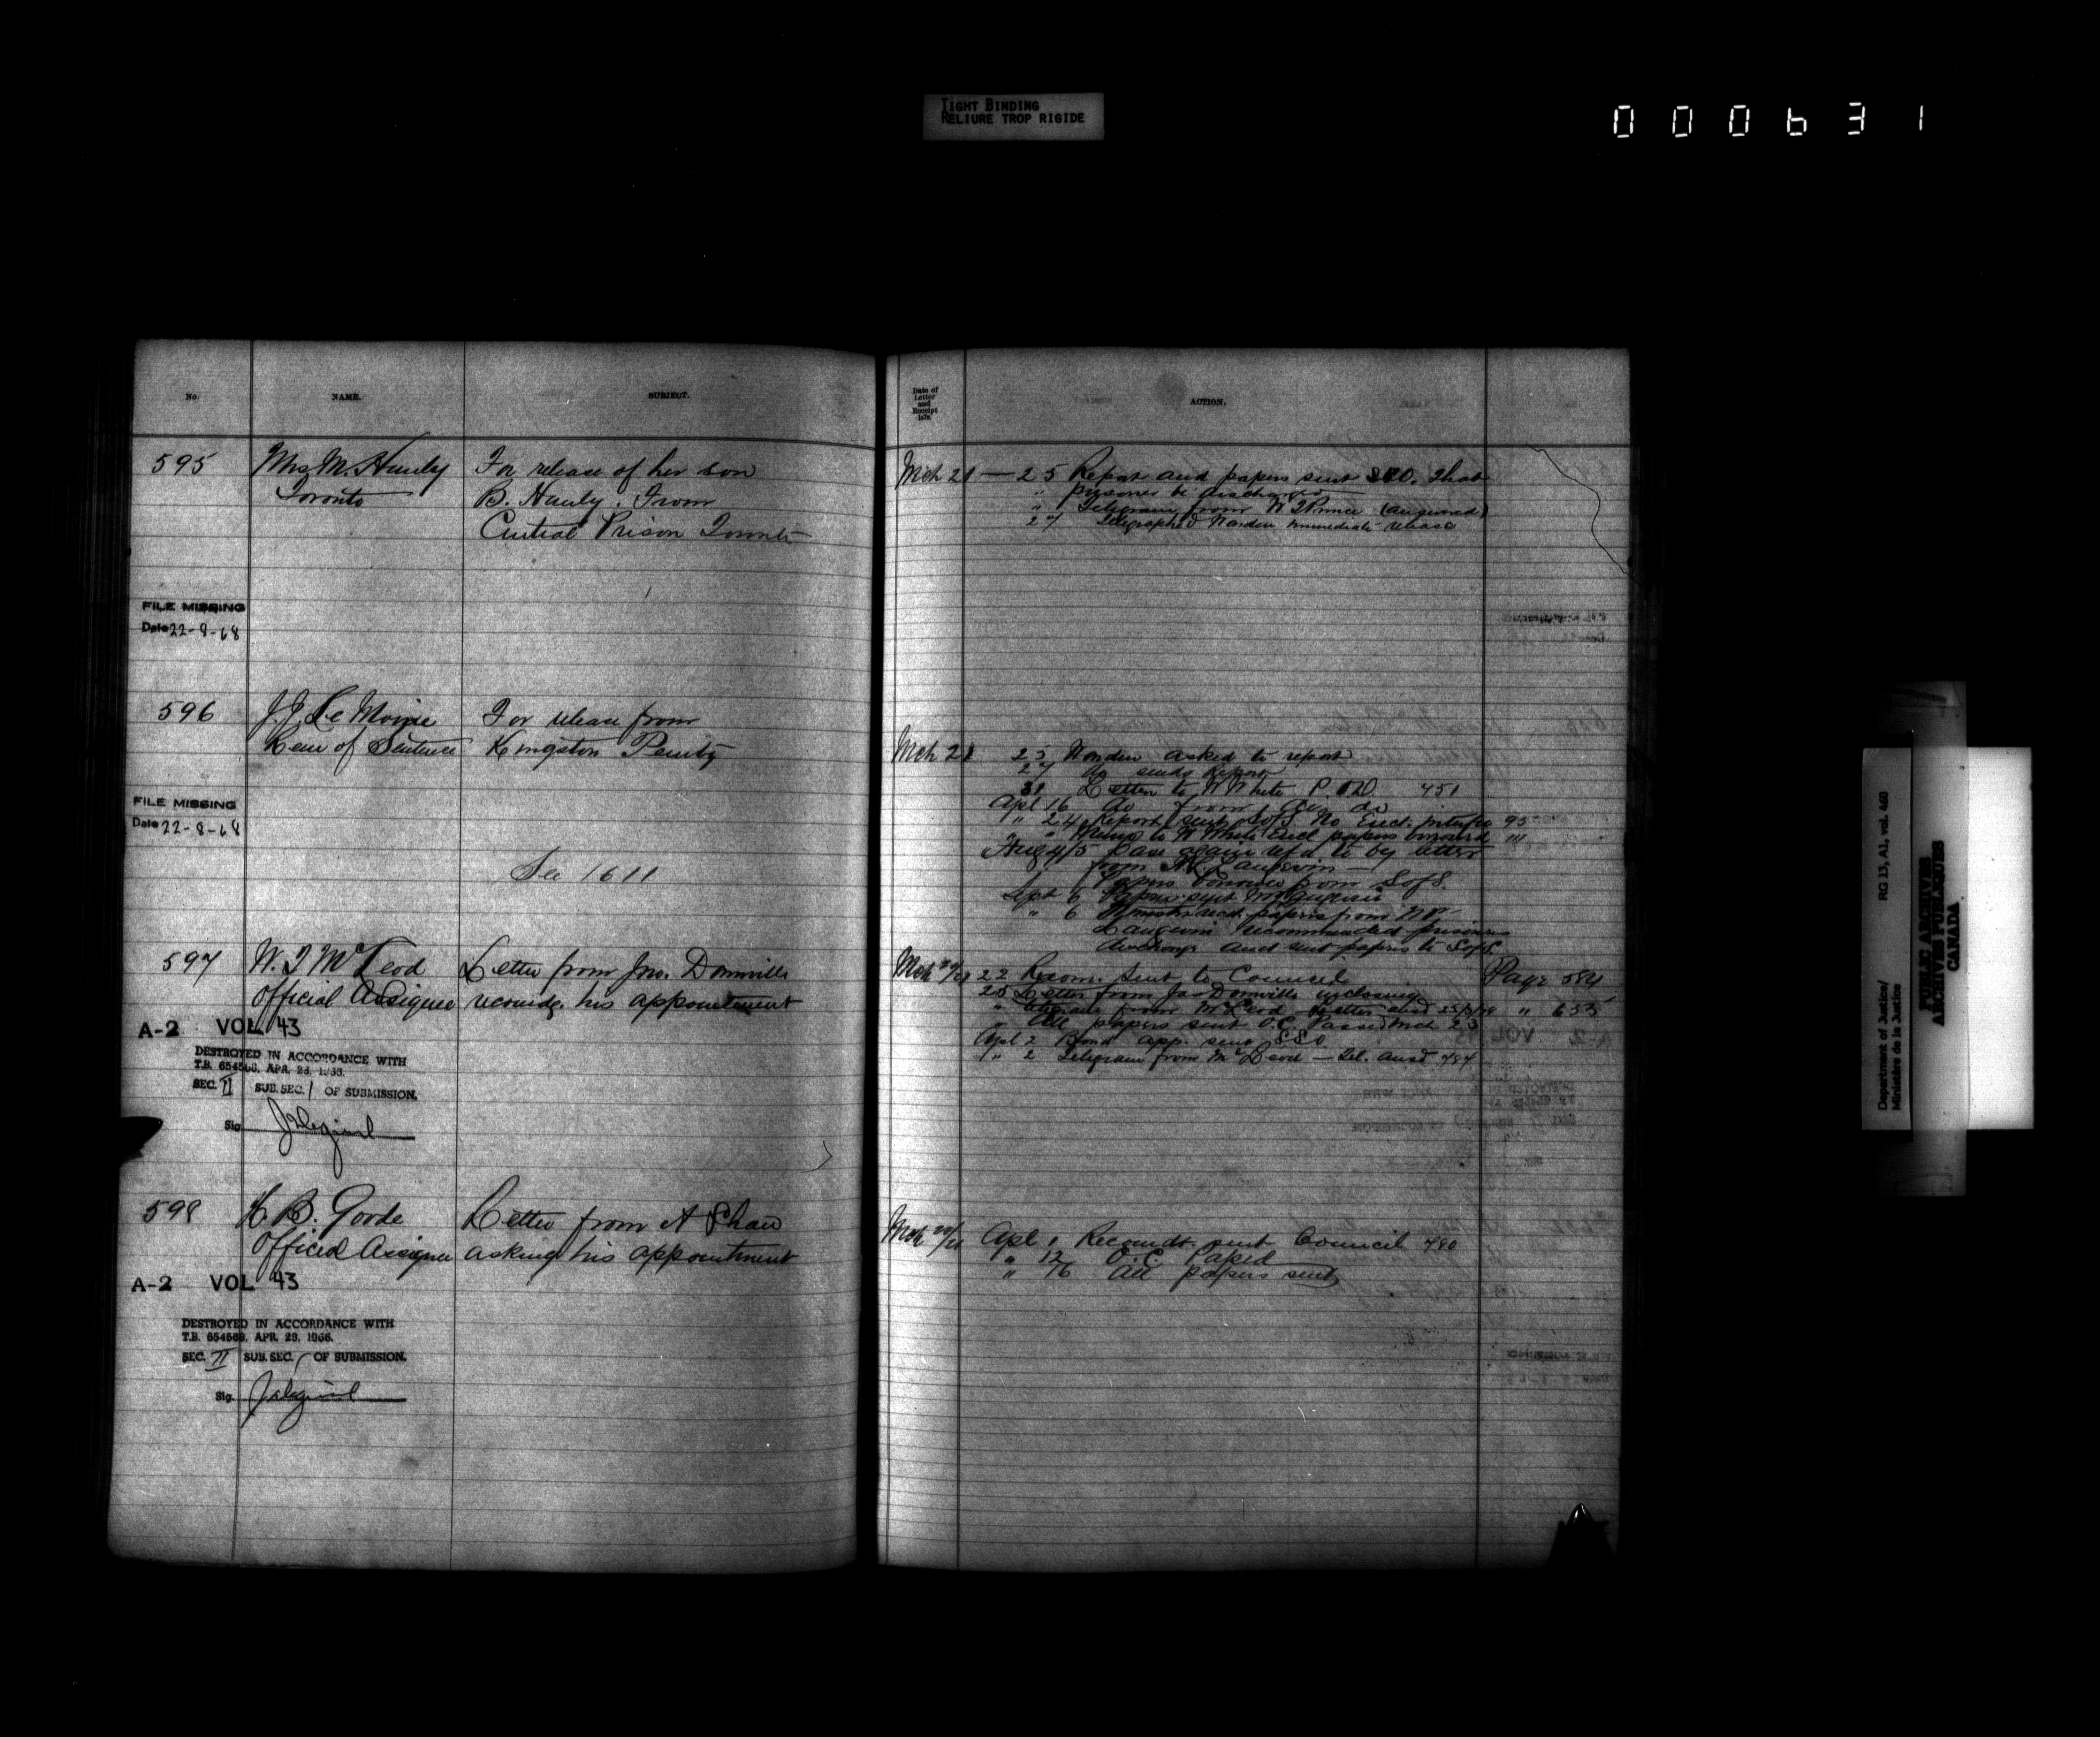 TIGHT BINDING
RELIURE TROP RIGIDE
000631
No.
NAME.
SUBJECT.
595
Mrs M. Hanly
Toronto
For release of her son
B. Hanly. From
Central Prison Toronto
FILE MISSING
Date 22-8-68
596
J. J. Le Moine
Rem of Sentence
For release from
Kingston Penity
FILE MISSING
Date 22-8-68
See 1611
597
W. J McLeod
Official Assignee
Letter from Jno. Domville
recomdg. his appointment
A-2 VOL. 43
DESTROYED IN ACCORDANCE WITH
T.B. 654568, APR. 28, 1966.
SEC. II SUB. SEC. 1 OF SUBMISSION.
Sig.
598
H. B. Goode
Official Assignee
Letter from A Shaw
asking his appointment
A-2 VOL 43
DESTROYED IN ACCORDANCE WITH
T.B. 654568, APR. 28, 1966.
SEC. II SUB. SEC. 1 OF SUBMISSION.
Sig.
Date of
Letter
and
Receipt
1878.
ACTION.
Mch 21 — 25 Report and papers sent That
" prisoner be discharged
" Telegram from W Prince (answered)
27 Telegraphed Warden immediate release
Mch 21 25 Warden asked to report
27 do sends report
31 Letter to W White P.O.D. 451
Apl 16 do from do
" 24 Report sent SofS. No Exect. interfce 95
" " Memo to W White Encl papers borrowed "
Aug 4/5 Case again refd to by letter
from Langevin —
Papers borrowed from SofS.
Sept 6 Papers sent
" 6 papers from
Langevin recommended prisoners
discharge and sent papers to SofS
Mch 20/21 22 Recom. Sent to Council Page 584
25 Letter from Jas Domville enclosing
" telegram from McLeod Letter ansd 25/3/78 " 635
" All papers sent O.C. Passed Mch 23
Apl 2 Bond app. sent SSO
" 2 Telegram from McLeod — Tel. ansd 484
Mch 20/21 Apl 1 Recomdt. sent Council 480
" 12 O.C. Passed
" 16 All papers sent
Department of Justice/
Ministère de la Justice
RG 13, A1, vol. 460
PUBLIC ARCHIVES
ARCHIVES PUBLIQUES
CANADA